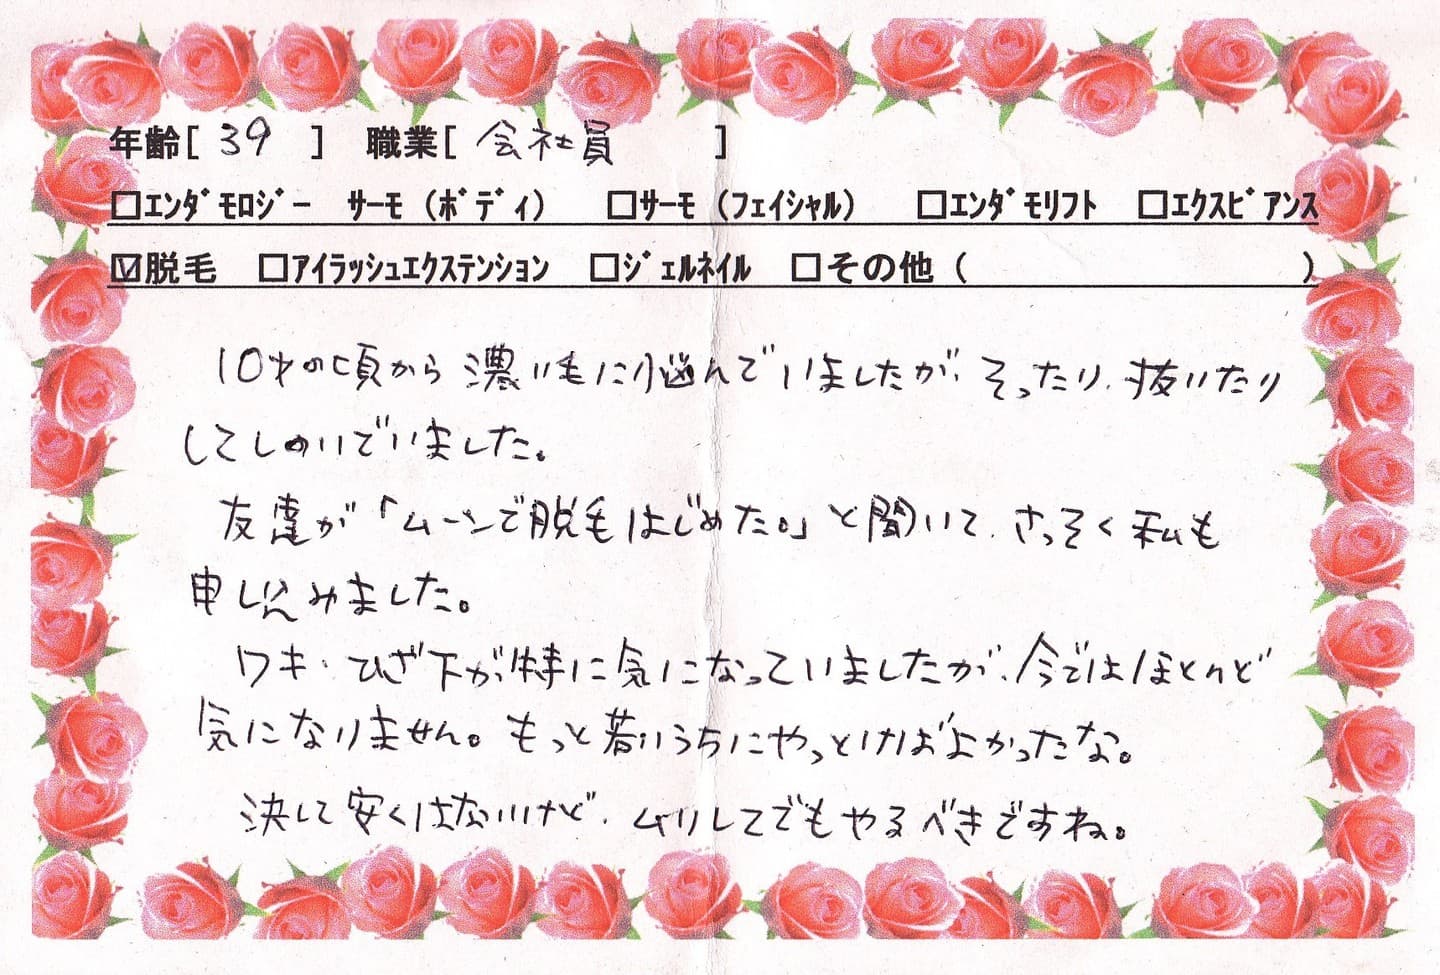 年齢[ 39 ] 職業[ 会社員 ]
□エンダモロジー サーモ（ボディ） □サーモ（フェイシャル） □エンダモリフト □エクスビアンス
☑脱毛 □アイラッシュエクステンション □ジェルネイル □その他（ ）
10才の頃から濃い毛に悩んでいましたが、そったり、抜いたり
してしのいでいました。
友達が「ムーンで脱毛はじめた。」と聞いて、さっそく私も
申し込みました。
ワキ・ひざ下が特に気になっていましたが、今ではほとんど
気になりません。もっと若いうちにやっとけばよかったな。
決して安くはないけど、ムリしてでもやるべきですね。